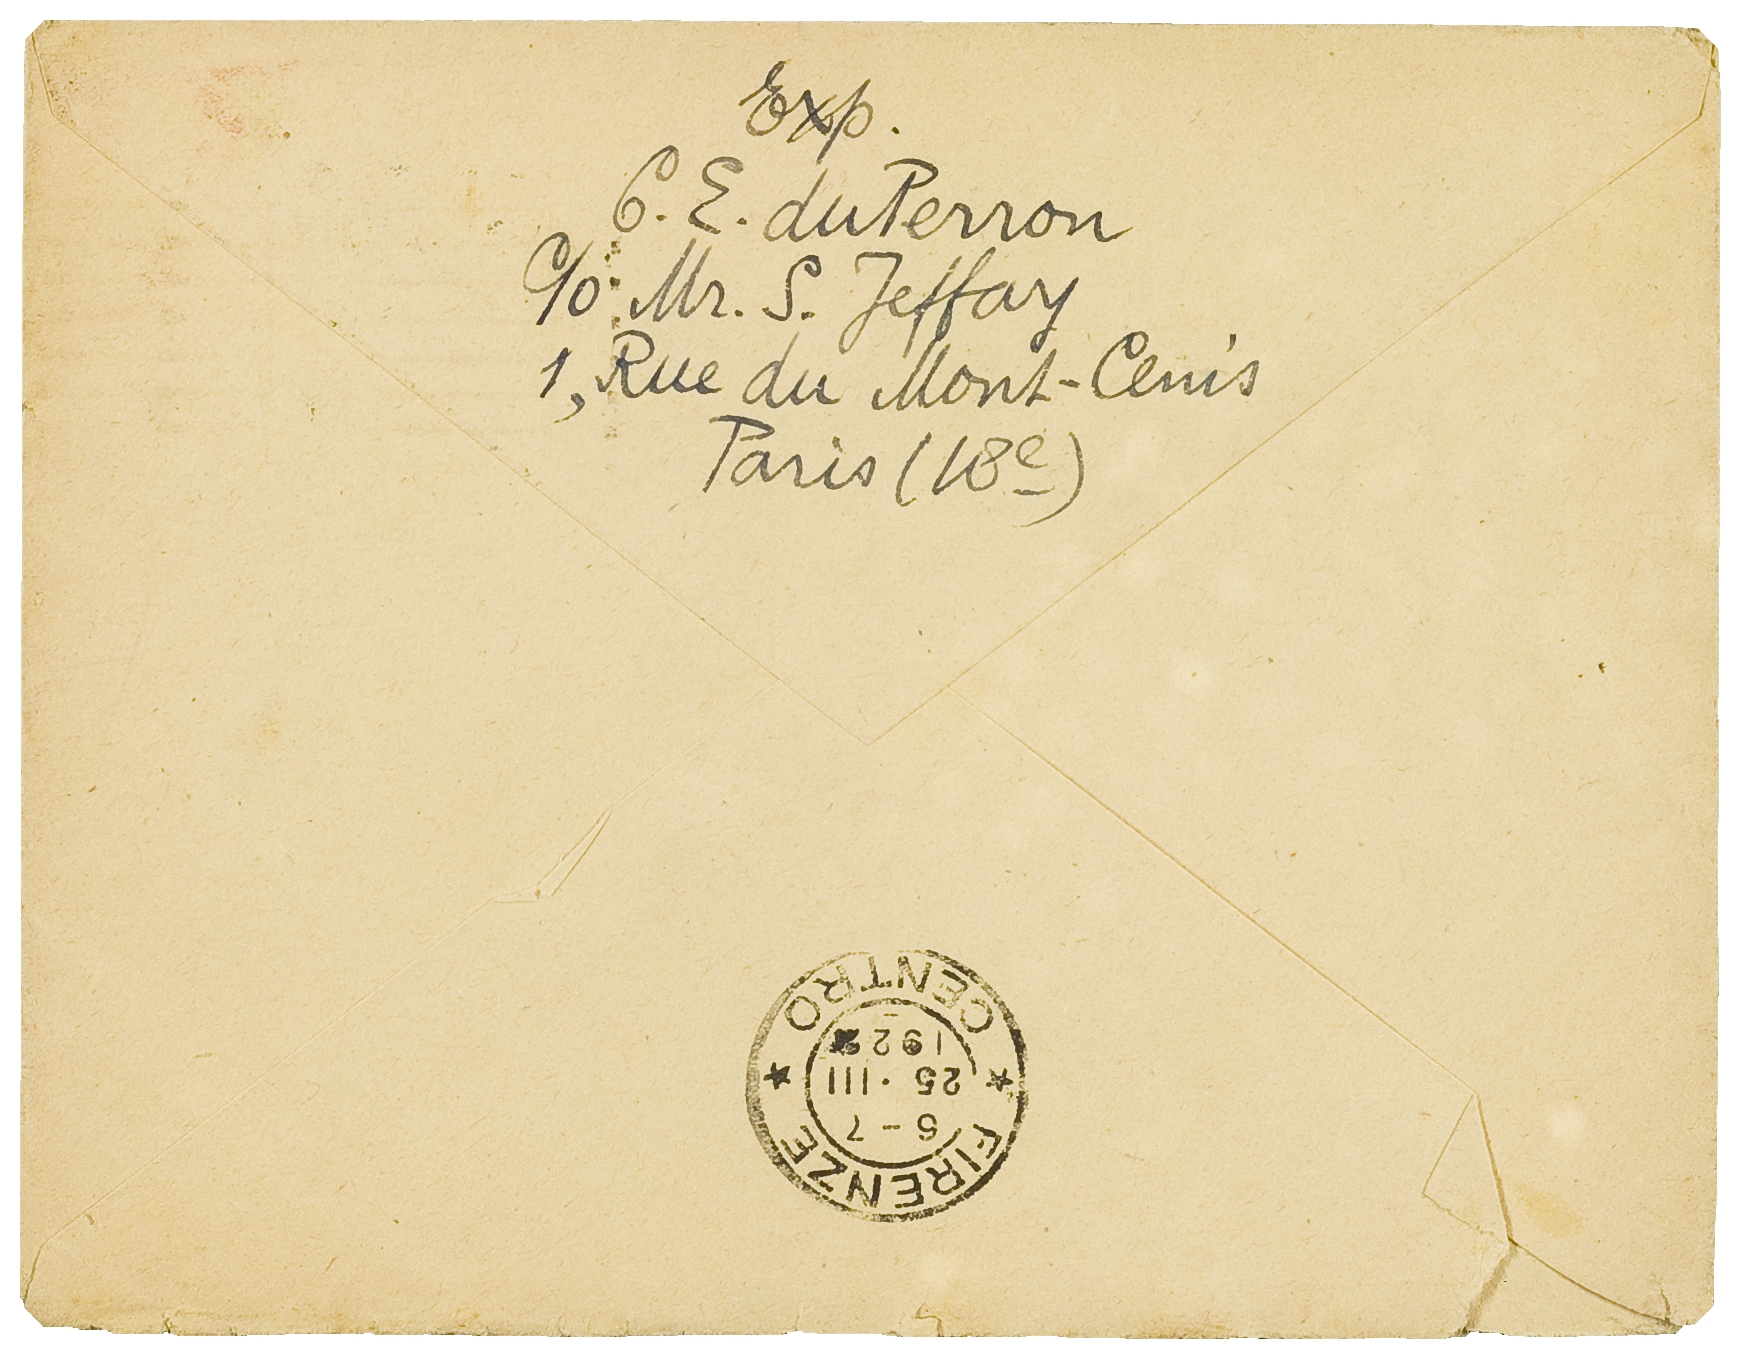 Exp.
C. E. du Perron
c/o Mr. S. Jeffay
1, Rue du Mont-Cenis
Paris (18e)
CENTRO
25 · III
6-7
FIRENZE